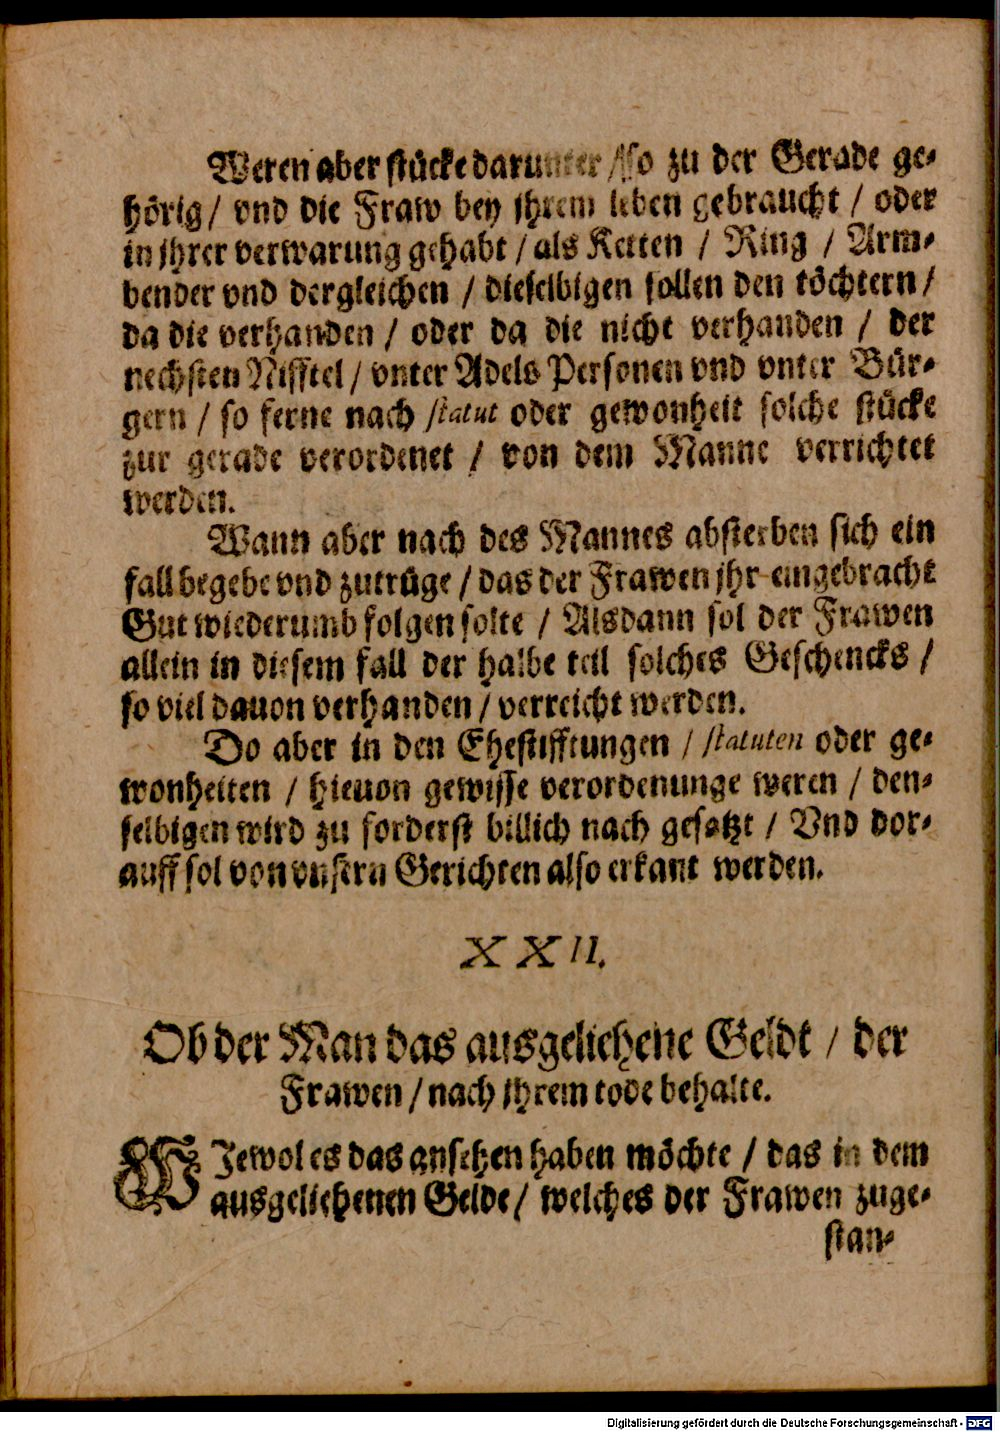 Weren aber stücke darunter / so zu der Gerade ge-
hörig / vnd die Fraw bey jhrem leben gebraucht / oder
in jhrer verwarung gehabt / als Ketten / Ring / Arm-
bender vnd dergleichen / dieselbigen sollen den töchtern /
da die verhanden / oder da die nicht verhanden / der
nechsten Nifftel / vnter Adels Personen vnd vnter Bür-
gern / so ferne nach statut oder gewonheit solche stücke
zur gerade verordenet / von dem Manne verrichtet
werden.
Wann aber nach des Mannes absterben sich ein
fall begebe vnd zutrüge / das der Frawen jhr eingebracht
Gut wiederumb folgen solte / Alsdann sol der Frawen
allein in diesem fall der halbe teil solches Geschencks /
so viel dauon verhanden / verreicht werden.
Do aber in den Ehestifftungen / statuten oder ge-
wonheiten / hieuon gewisse verordenunge weren / den-
selbigen wird zu forderst billich nach gesetzt / Vnd dor-
auff sol von vnsern Gerichten also erkant werden.
XXII.
Ob der Man das ausgeliehene Geldt / der
Frawen / nach jhrem tode behalte.
WJewol es das ansehen haben möchte / das in dem
ausgeliehenen Gelde / welches der Frawen zuge-
stan-
Digitalisierung gefördert durch die Deutsche Forschungsgemeinschaft - DFG